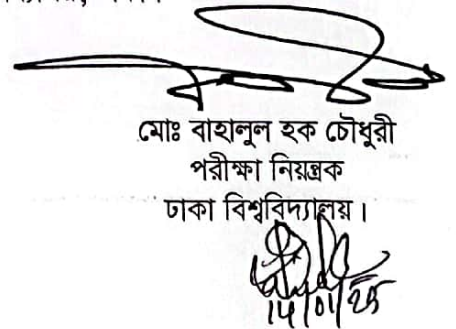 মোঃ বাহালুল হক চৌধুরী
পরীক্ষা নিয়ন্ত্রক
ঢাকা বিশ্ববিদ্যালয়।
14/01/25